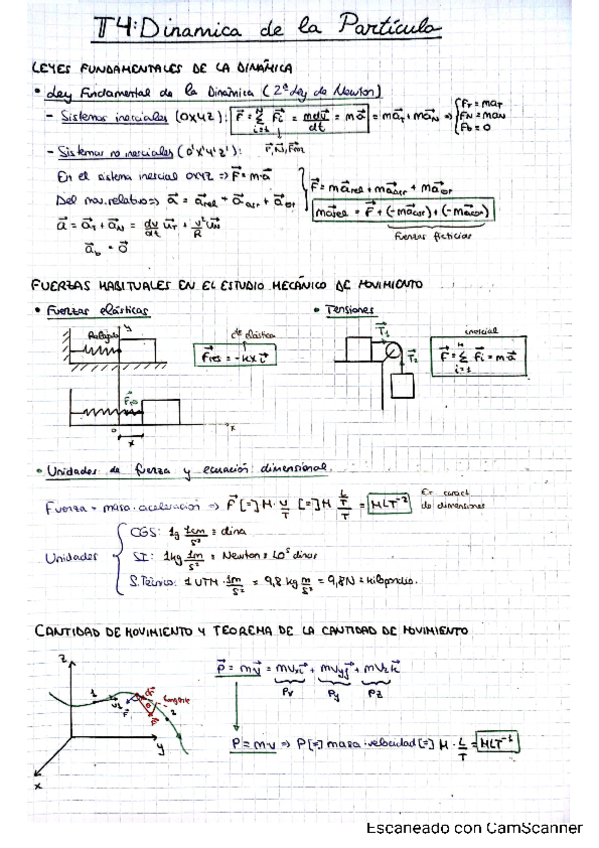 T4: Dinamica de la Partícula
LEYES FUNDAMENTALES DE LA DINÁMICA
• Ley Fundamental de la Dinámica (2ª Ley de Newton)
- Sistemas inerciales (OXYZ): F⃗ = Σ F⃗i = mdv⃗/dt = ma⃗ = ma⃗T + ma⃗N ⇒ { FT = maT
i=1
FN = maN
Fb = 0
- Sistemas no inerciales (O'X'Y'Z'):
En el sistema inercial OXYZ ⇒ F⃗ = m·a⃗
F⃗ = ma⃗rel + ma⃗arr + ma⃗cor
Del mov. relativo ⇒ a⃗ = a⃗rel + a⃗arr + a⃗cor
ma⃗rel = F⃗ + (-ma⃗arr) + (-ma⃗cor)
a⃗ = a⃗T + a⃗N = dv/dt u⃗T + v²/R u⃗N
fuerzas ficticias
a⃗b = 0⃗
FUERZAS HABITUALES EN EL ESTUDIO MECÁNICO DE MOVIMIENTO
• Fuerzas elásticas
• Tensiones
Relajado
cte elástica
T⃗1
inercial
T⃗2
F⃗ = Σ F⃗i = m·a⃗
i=1
x
o
x
• Unidades de fuerza y ecuación dimensional
Fuerza = masa·aceleración ⇒ F⃗ [=] M · v/T [=] M L/T/T = MLT⁻²
de dimensiones
Unidades
CGS: 1g 1cm/s² = dina
SI: 1kg 1m/s² = Newton = 10⁵ dinas
S.Técnico: 1 UTM · 1m/s² = 9,8 kg m/s² = 9,8N = kilopondio.
CANTIDAD DE MOVIMIENTO Y TEOREMA DE LA CANTIDAD DE MOVIMIENTO
z
P⃗ = mv⃗ = mvx i⃗ + mvy j⃗ + mvz k⃗
Px Py Pz
1
tangente
2
y
x
P = mv ⇒ P [=] masa·velocidad [=] M · L/T = MLT⁻¹
Escaneado con CamScanner